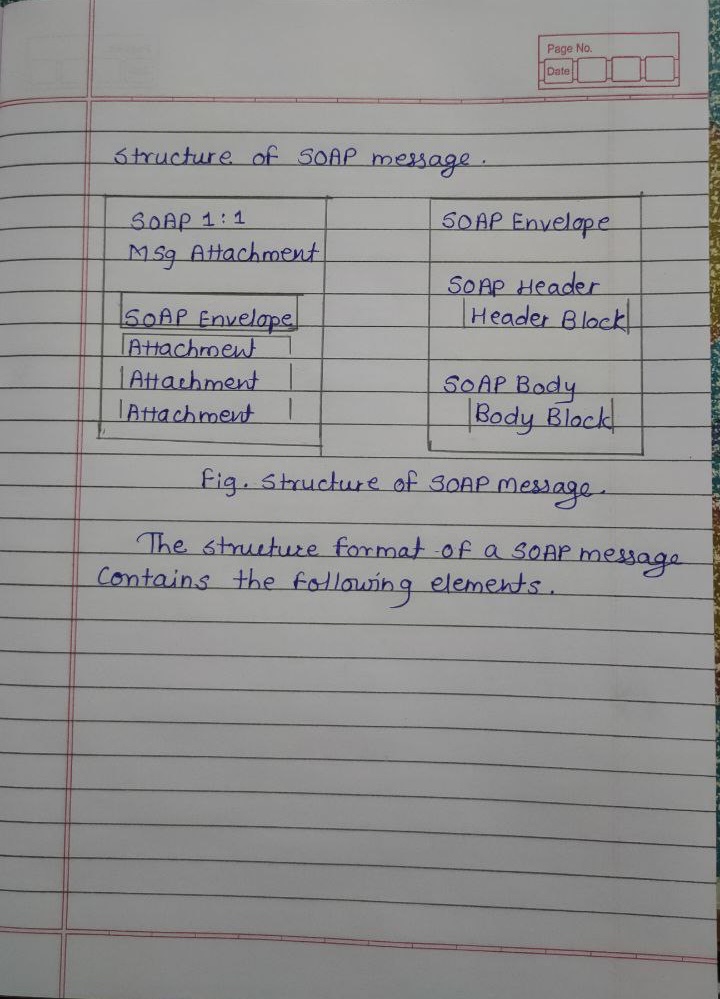 Page No.
Date
Structure of SOAP message.
SOAP 1:1
Msg Attachment
SOAP Envelope
Attachment
Attachment
Attachment
SOAP Envelope
SOAP Header
Header Block
SOAP Body
Body Block
Fig. Structure of SOAP message.
The structure format of a SOAP message
Contains the following elements.